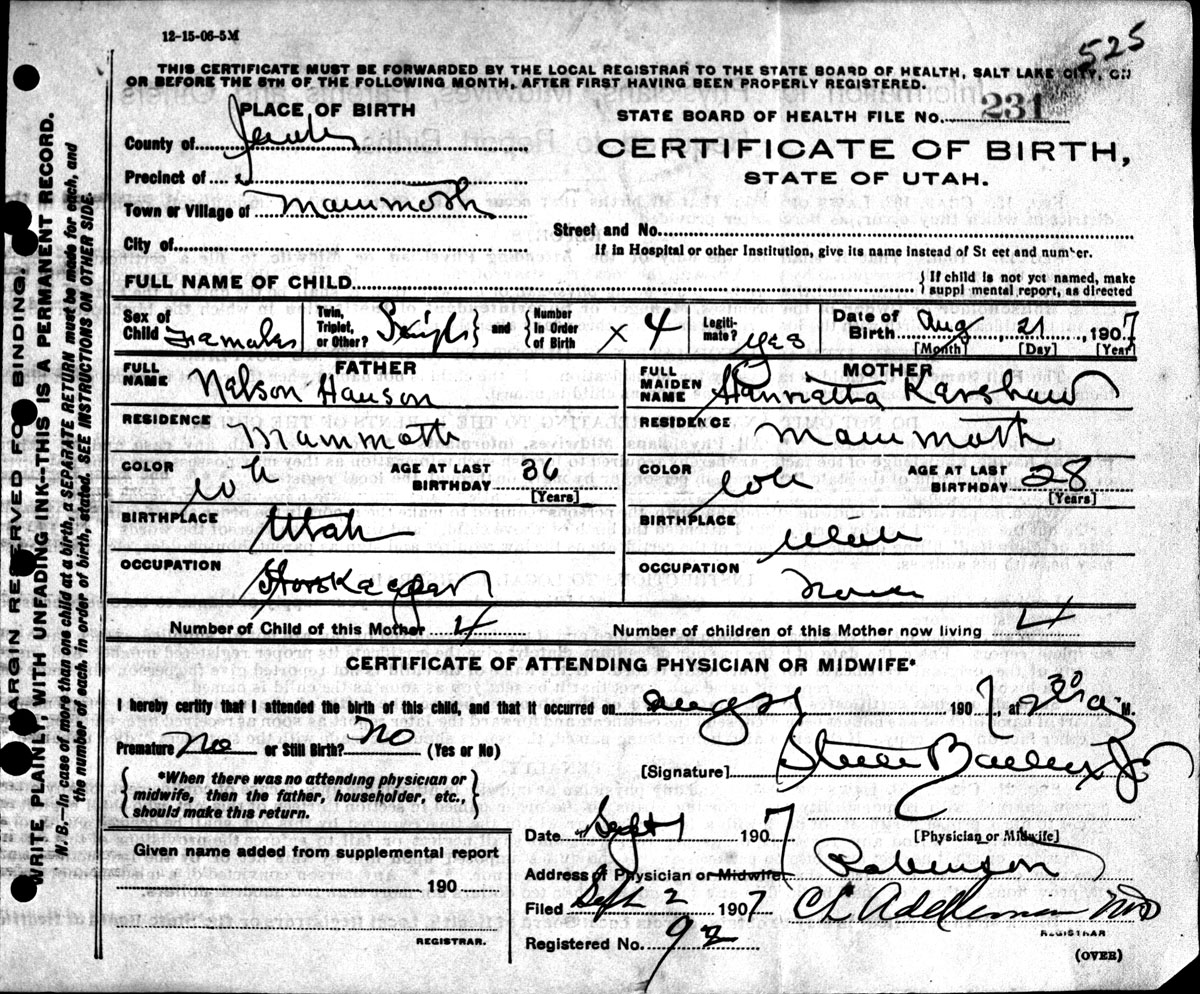 12-15-06-5M
525
THIS CERTIFICATE MUST BE FORWARDED BY THE LOCAL REGISTRAR TO THE STATE BOARD OF HEALTH, SALT LAKE CITY, ON
OR BEFORE THE 5TH OF THE FOLLOWING MONTH, AFTER FIRST HAVING BEEN PROPERLY REGISTERED.
PLACE OF BIRTH
STATE BOARD OF HEALTH FILE No. 231
County of Juab
CERTIFICATE OF BIRTH,
Precinct of
STATE OF UTAH.
Town or Village of Mammoth
Street and No.
City of
If in Hospital or other Institution, give its name instead of St eet and number.
FULL NAME OF CHILD
{ If child is not yet named, make
suppl mental report, as directed
Sex of Child Female Twin, Triplet, or Other? } and { Number in Order of Birth x 4 Legiti- mate? yes Date of Birth Aug, 21, 1907
[Month] [Day] [Year]
FATHER MOTHER
FULL NAME Nelson Hanson FULL MAIDEN NAME Hanrietta Karshaw
RESIDENCE Mammoth RESIDENCE Mammoth
COLOR Wh AGE AT LAST BIRTHDAY 36 [Years] COLOR AGE AT LAST BIRTHDAY 28 [Years]
BIRTHPLACE Utah BIRTHPLACE Utah
OCCUPATION OCCUPATION None
Number of Child of this Mother 4 Number of children of this Mother now living 4
CERTIFICATE OF ATTENDING PHYSICIAN OR MIDWIFE*
I hereby certify that I attended the birth of this child, and that it occurred on Aug 21 1907, at 2 30 a M.
Premature No or Still Birth? No (Yes or No)
[Signature] Steele Bailey Jr
{ *When there was no attending physician or
midwife, then the father, householder, etc.,
should make this return. }
Date Sept 1 1907 [Physician or Midwife]
Given name added from supplemental report
Address of Physician or Midwife Robinson
190
Filed Sept 2 1907
REGISTRAR.
REGISTRAR
Registered No. 92
(OVER)
MARGIN RESERVED FOR BINDING.
WRITE PLAINLY, WITH UNFADING INK—THIS IS A PERMANENT RECORD.
N. B.—In case of more than one child at a birth, a SEPARATE RETURN must be made for each, and
the number of each, in order of birth, stated. SEE INSTRUCTIONS ON OTHER SIDE.